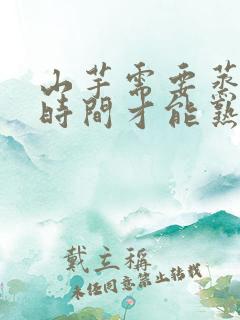 山芋需要蒸
時間才能熟
戴立稱
未經同意禁止轉載